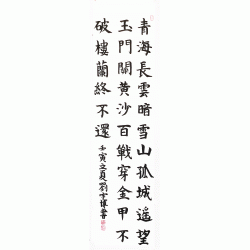 青海長雲暗雪山孤城遙望
玉門關黃沙百戰穿金甲不
破樓蘭終不還
壬寅之夏劉書